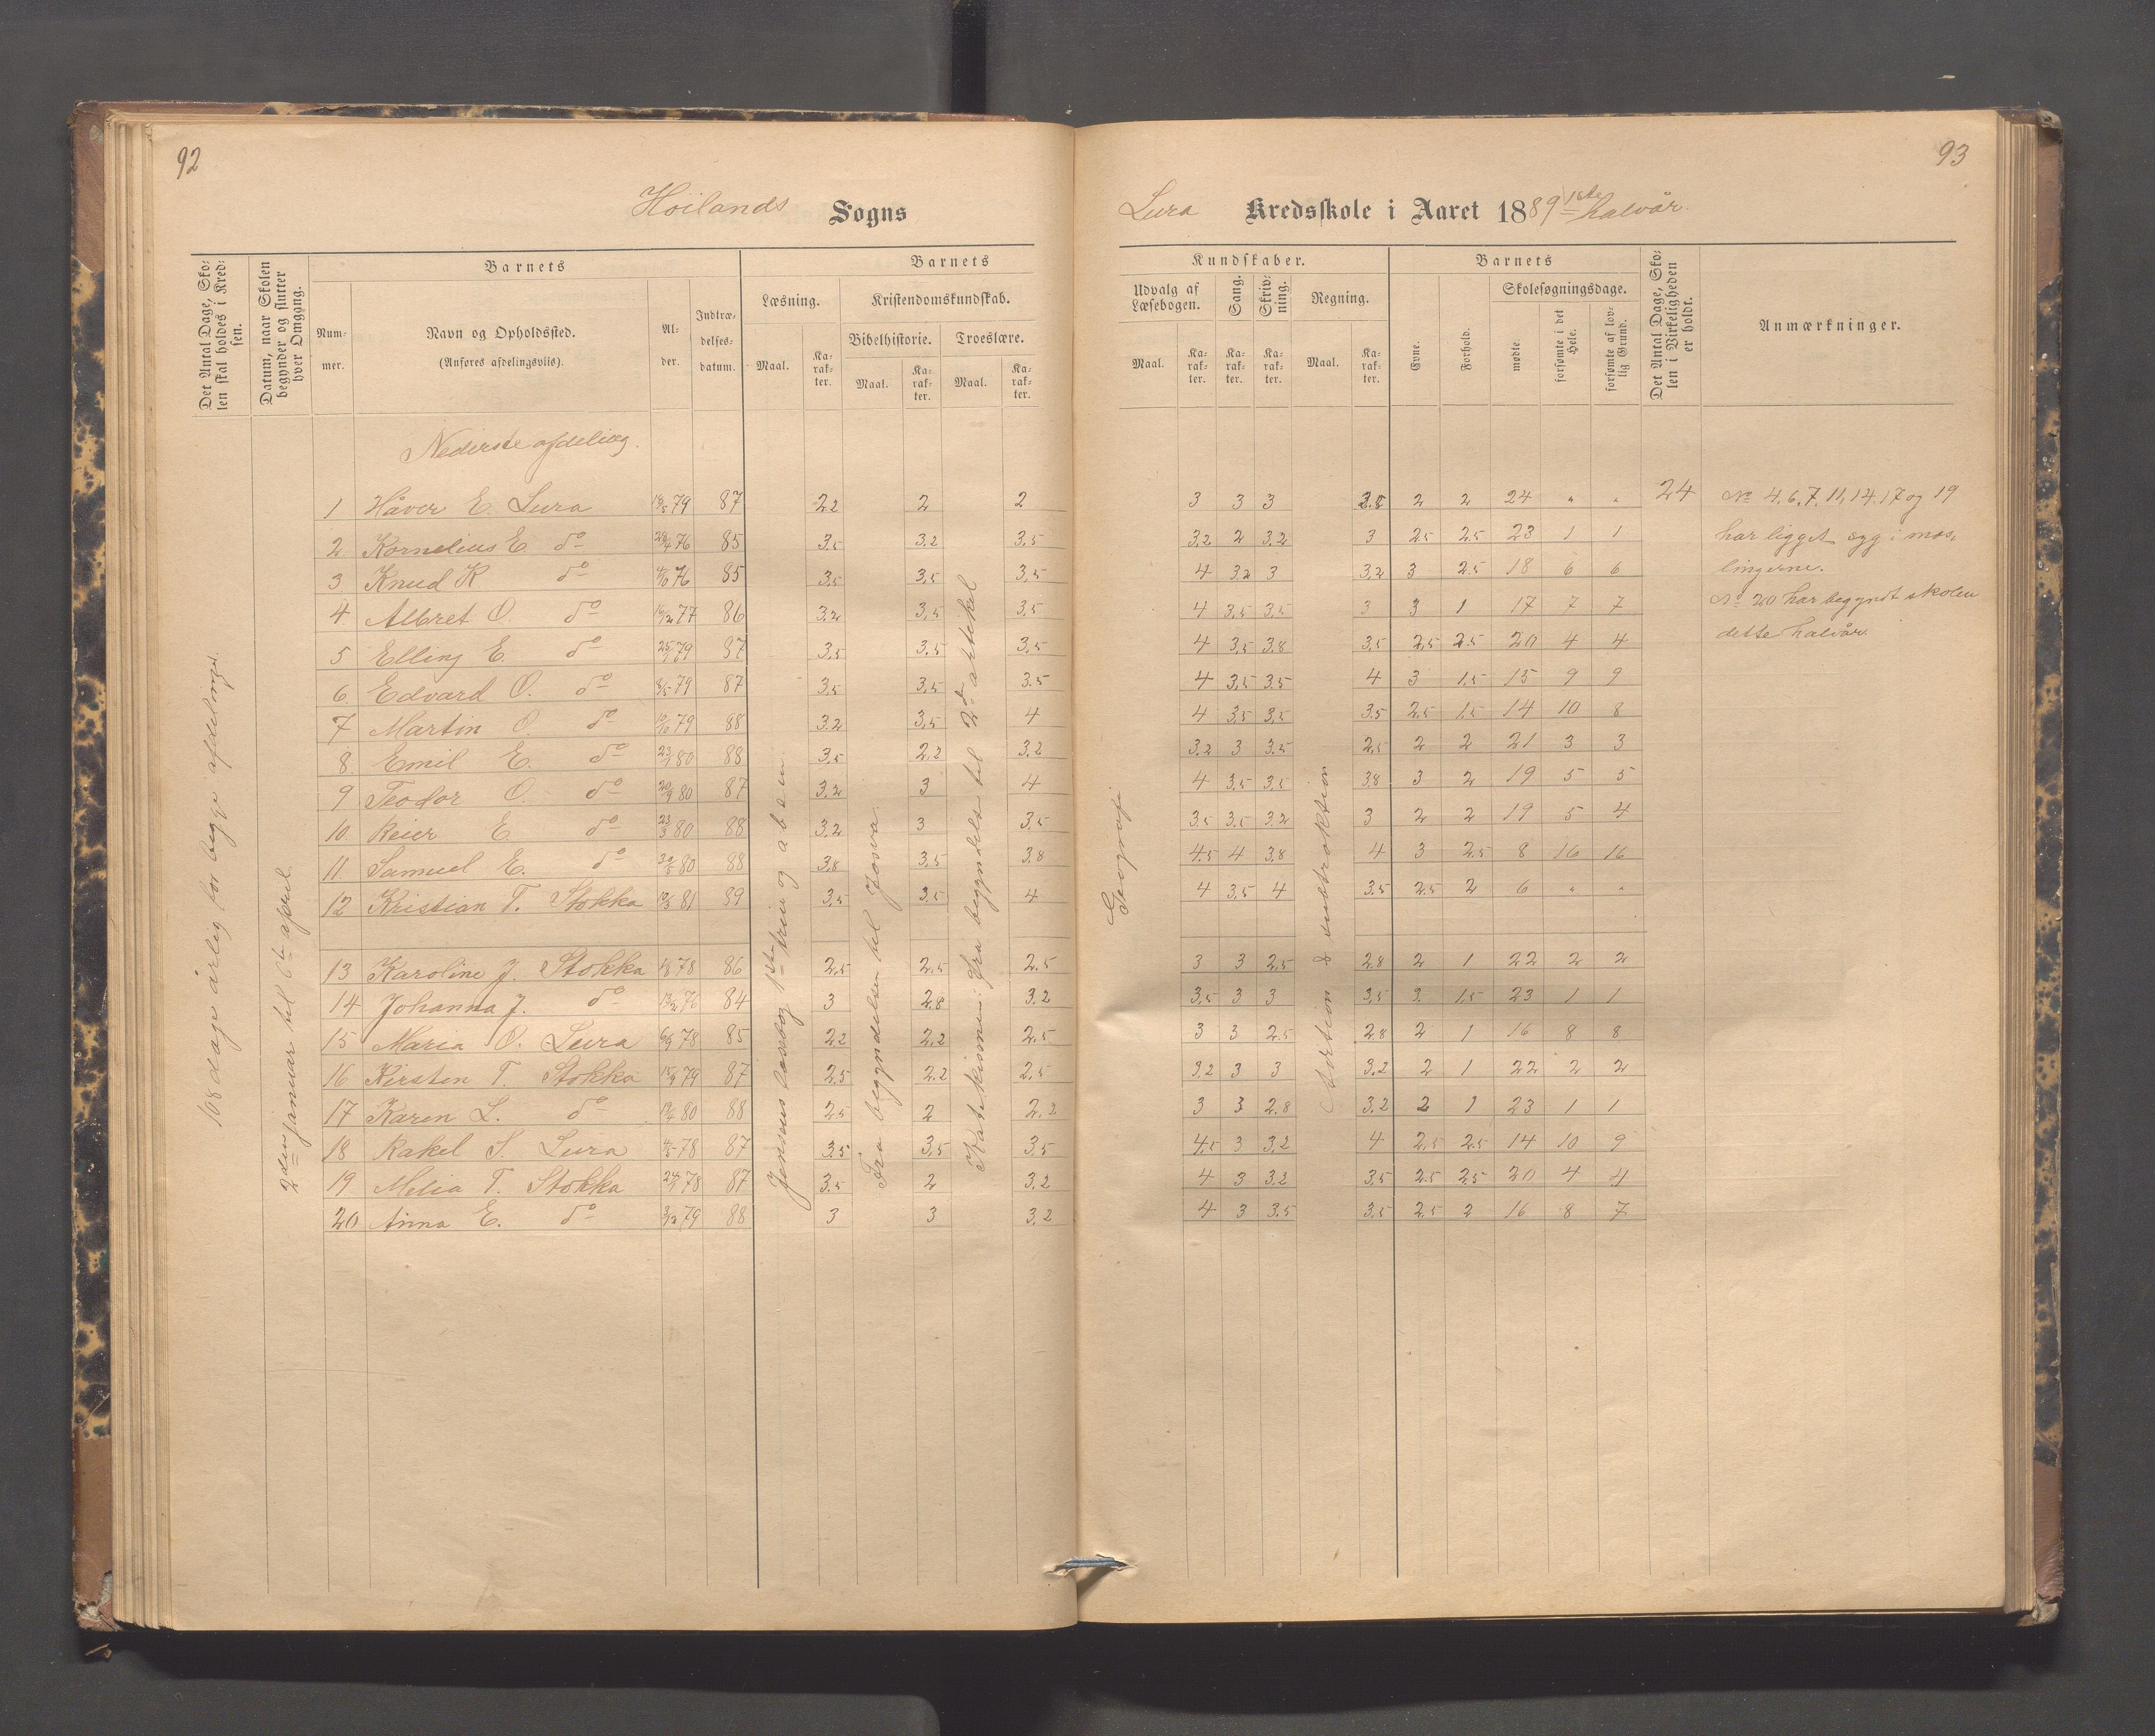 92
Höilands Sogns
Det Antal Dage, Skolen skal holdes i Kredsen.
Datum, naar Skolen begynder og slutter hver Omgang.
Barnets
Nummer.
Navn og Opholdssted.
(Anføres afdelingsviis).
Alder.
Indtrædelsesdatum.
Barnets
Læsning.
Kristendomskundskab.
Bibelhistorie. Troeslære.
Maal. Karakter. Maal. Karakter. Maal. Karakter.
Nederste afdeling.
1 Håver E. Lura 79 87 2.2 2 2
2 Kornelius E. do 76 85 3.5 3.2 3.5
3 Knud K do 76 85 3,5 3,5 3,5
4 Albret O. do 77 86 3,2 3,5 3,5
5 Elling E. do 79 87 3,5 3.5 3,5
6 Edvard O. do 79 87 3,5 3,5 3.5
7 Martin O. do 79 88 3.2 3,5 4
8 Emil E. do 80 88 3.5 2,2 3.2
9 Teodor O. do 80 87 3,2 3 4
10 Reier E. do 80 88 3,2 3 3,5
11 Samuel E. do 80 88 3,8 3,5 3.8
12 Kristian T. Stokka 81 89 3,5 3.5 4
13 Karoline J. Stokka 78 86 2,5 2.5 2.5
14 Johanna J. do 76 84 3 2.8 3.2
15 Maria O. Lura 78 85 2.2 2,2 2.5
16 Kirsten T. Stokka 79 87 2,5 2.2 2,5
17 Karen L. do 80 88 2.5 2 2,2
18 Rakel S. Lura 78 87 3.5 3,5 3,5
19 Melia T. Stokka 78 87 3.5 2 3.2
20 Anna E. do 79 88 3 3 3,2
108 dage årlig for begge afdelinger.
2den januar til 6te april.
Jensens læsebog 1ste trin og a b c en.
Fra begyndelsen til Josva.
Katekismen: fra begyndelse til 2den artikel
93
Lura Kredsskole i Aaret 1889 1ste halvår.
Kundskaber.
Udvalg af Læsebogen.
Sang.
Skrivning.
Regning.
Maal. Karakter. Karakter. Karakter. Maal. Karakter.
Barnets
Evne.
Forhold.
Skolesøgningsdage.
mødte.
forsømte i det Hele.
forsømte af lovlig Grund.
Det Antal Dage, Skolen i Virkeligheden er holdt.
Anmærkninger.
3 3 3 2.8 2 2 24 " " 24
3,2 2 3.2 3 2.5 2.5 23 1 1
4 3.2 3 3,2 3 2.5 18 6 6
4 3,5 3,5 3 3 1 17 7 7
4 3,5 3,8 3,5 2,5 2.5 20 4 4
4 3,5 3.5 4 3 1.5 15 9 9
4 3,5 3,5 3.5 2,5 1.5 14 10 8
3.2 3 3.5 2,5 2 2 21 3 3
4 3,5 3,5 3.8 3 2 19 5 5
3.5 3.5 3.2 3 2 2 19 5 4
4.5 4 3.8 4 3 2.5 8 16 16
4 3,5 4 3.5 2.5 2 6 " "
3 3 2,5 2.8 2 1 22 2 2
3,5 3 3 3,5 3. 1.5 23 1 1
3 3 2.5 2.8 2 1 16 8 8
3,2 3 3 3.2 2 1 22 2 2
3 3 2.8 3.2 2 1 23 1 1
4,5 3 3,2 4 2,5 2.5 14 10 9
4 3 3.2 3,5 2.5 2.5 20 4 4
4 3 3.5 3,5 2,5 2 16 8 7
Geografi
No 4, 6, 7, 11, 14, 17 og 19
har ligget syg i mæs,
lingerne.
No 20 har begyndt skolen
dette halvår.